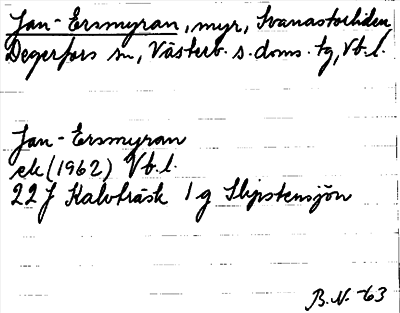 Jan-Ersmyran, myr, Svanastorliden
Degerfors sn, Västerb. s. doms. tg, Vb. l.
Jan-Ersmyran
ek (1962) Vb. l.
22 J Kalvträsk 1 g Slipstensjön
B. N. -63